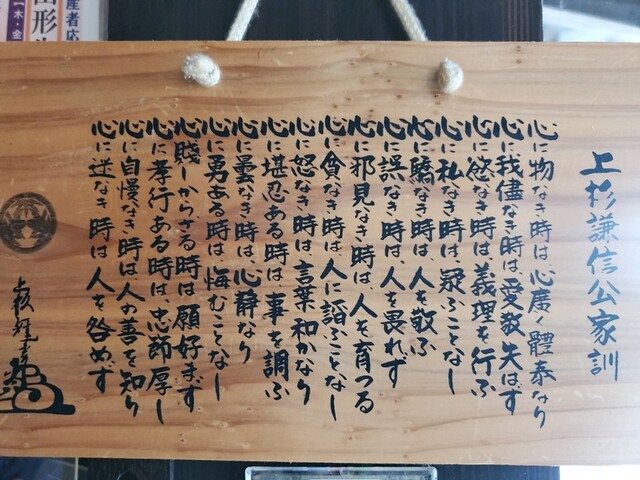 上杉謙信公家訓
心に物なき時は心広く體泰なり
心に我儘なき時は愛敬失はず
心に慾なき時は義理を行ふ
心に私なき時は疑ふことなし
心に驕なき時は人を敬ふ
心に誤なき時は人を畏れず
心に邪見なき時は人を育つる
心に貪なき時は人に諂ふことなし
心に怒なき時は言葉和かなり
心に堪忍ある時は事を調ふ
心に曇なき時は心静なり
心に勇ある時は悔むことなし
心賤しからざる時は願好まず
心に孝行ある時は忠節厚し
心に自慢なき時は人の善を知り
心に迷なき時は人を咎めず
産者応
【木・金
山形